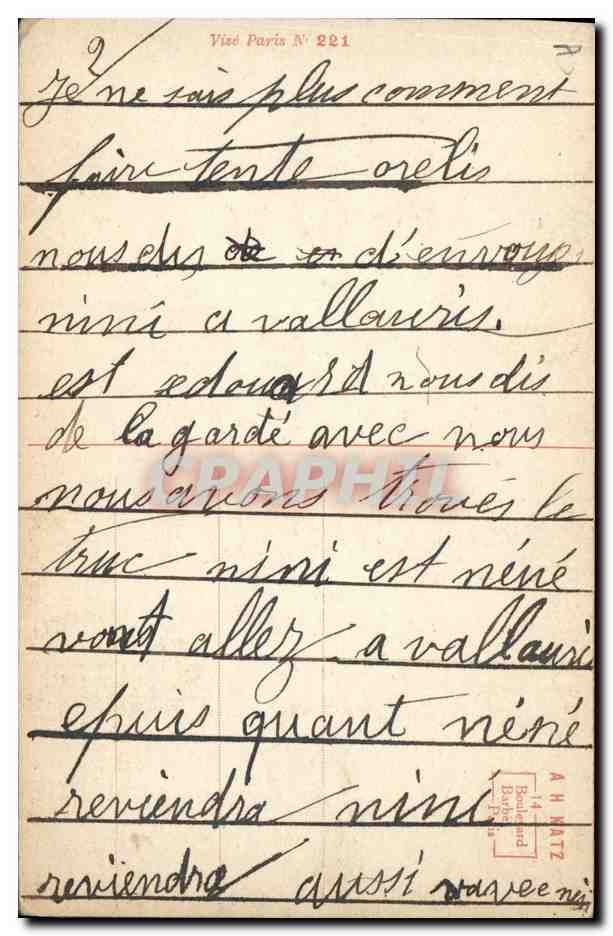 Visé Paris N° 221
2
Je ne sais plus comment
faire tente orelis
nous dis d'envoye
nini a vallauris.
est edouard nous dis
de la gardé avec nous
nous avons trovés le
truc nini est néné
vont allez a vallauris
epuis quant néné
reviendra nini
reviendra aussi avec
A H KATZ
14
Boulevard
Barbès
Paris
CRAPHTI